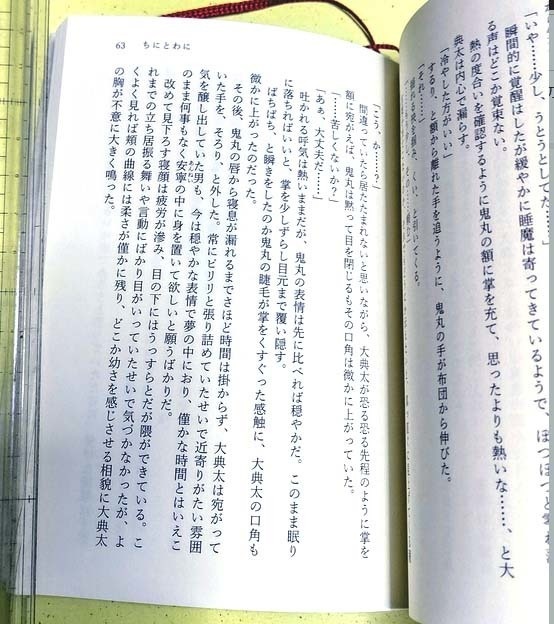 「いや……少し、うとうとしてた……」
瞬間的に覚醒はしたが緩やかに睡魔は寄ってきているようで、ぽつぽつと
る声はどこか覚束ない。
熱の度合いを確認するように鬼丸の額に掌を充て、思ったよりも熱いな……、と大
典太は内心で漏らす。
「冷やした方がいい」
するり、と額から離れた手を追うように、鬼丸の手が布団から伸びた。
「それ……」
くい、と引いてくる。
63 ちにとわに
「こう、か……？」
間違っていたら居たたまれないと思いながら、大典太が恐る恐る先程のように掌を
額に宛がえば、鬼丸は黙って目を閉じるもその口角は微かに上がっていた。
「……苦しくないか？」
「あぁ、大丈夫だ……」
吐かれる呼気は熱いままだが、鬼丸の表情は先に比べれば穏やかだ。このまま眠り
に落ちればいいと、掌を少しずらし目元まで覆い隠す。
ぱちぱち、と瞬きをしたのか鬼丸の睫毛が掌をくすぐった感触に、大典太の口角も
微かに上がったのだった。
その後、鬼丸の唇から寝息が漏れるまでさほど時間は掛からず、大典太は宛がって
いた手を、そろり、と外した。常にピリリと張り詰めていたせいで近寄りがたい雰囲
気を醸し出していた男も、今は穏やかな表情で夢の中におり、僅かな時間とはいえこ
のまま何事もなく安寧の中に身を置いて欲しいと願うばかりだ。
改めて見下ろす寝顔は疲労が滲み、目の下にはうっすらとだが隈ができている。こ
れまでの立ち居振る舞いや言動にばかり目がいっていたせいで気づかなかったが、よ
くよく見れば頬の曲線には柔さが僅かに残り、どこか幼さを感じさせる相貌に大典太
の胸が不意に大きく鳴った。